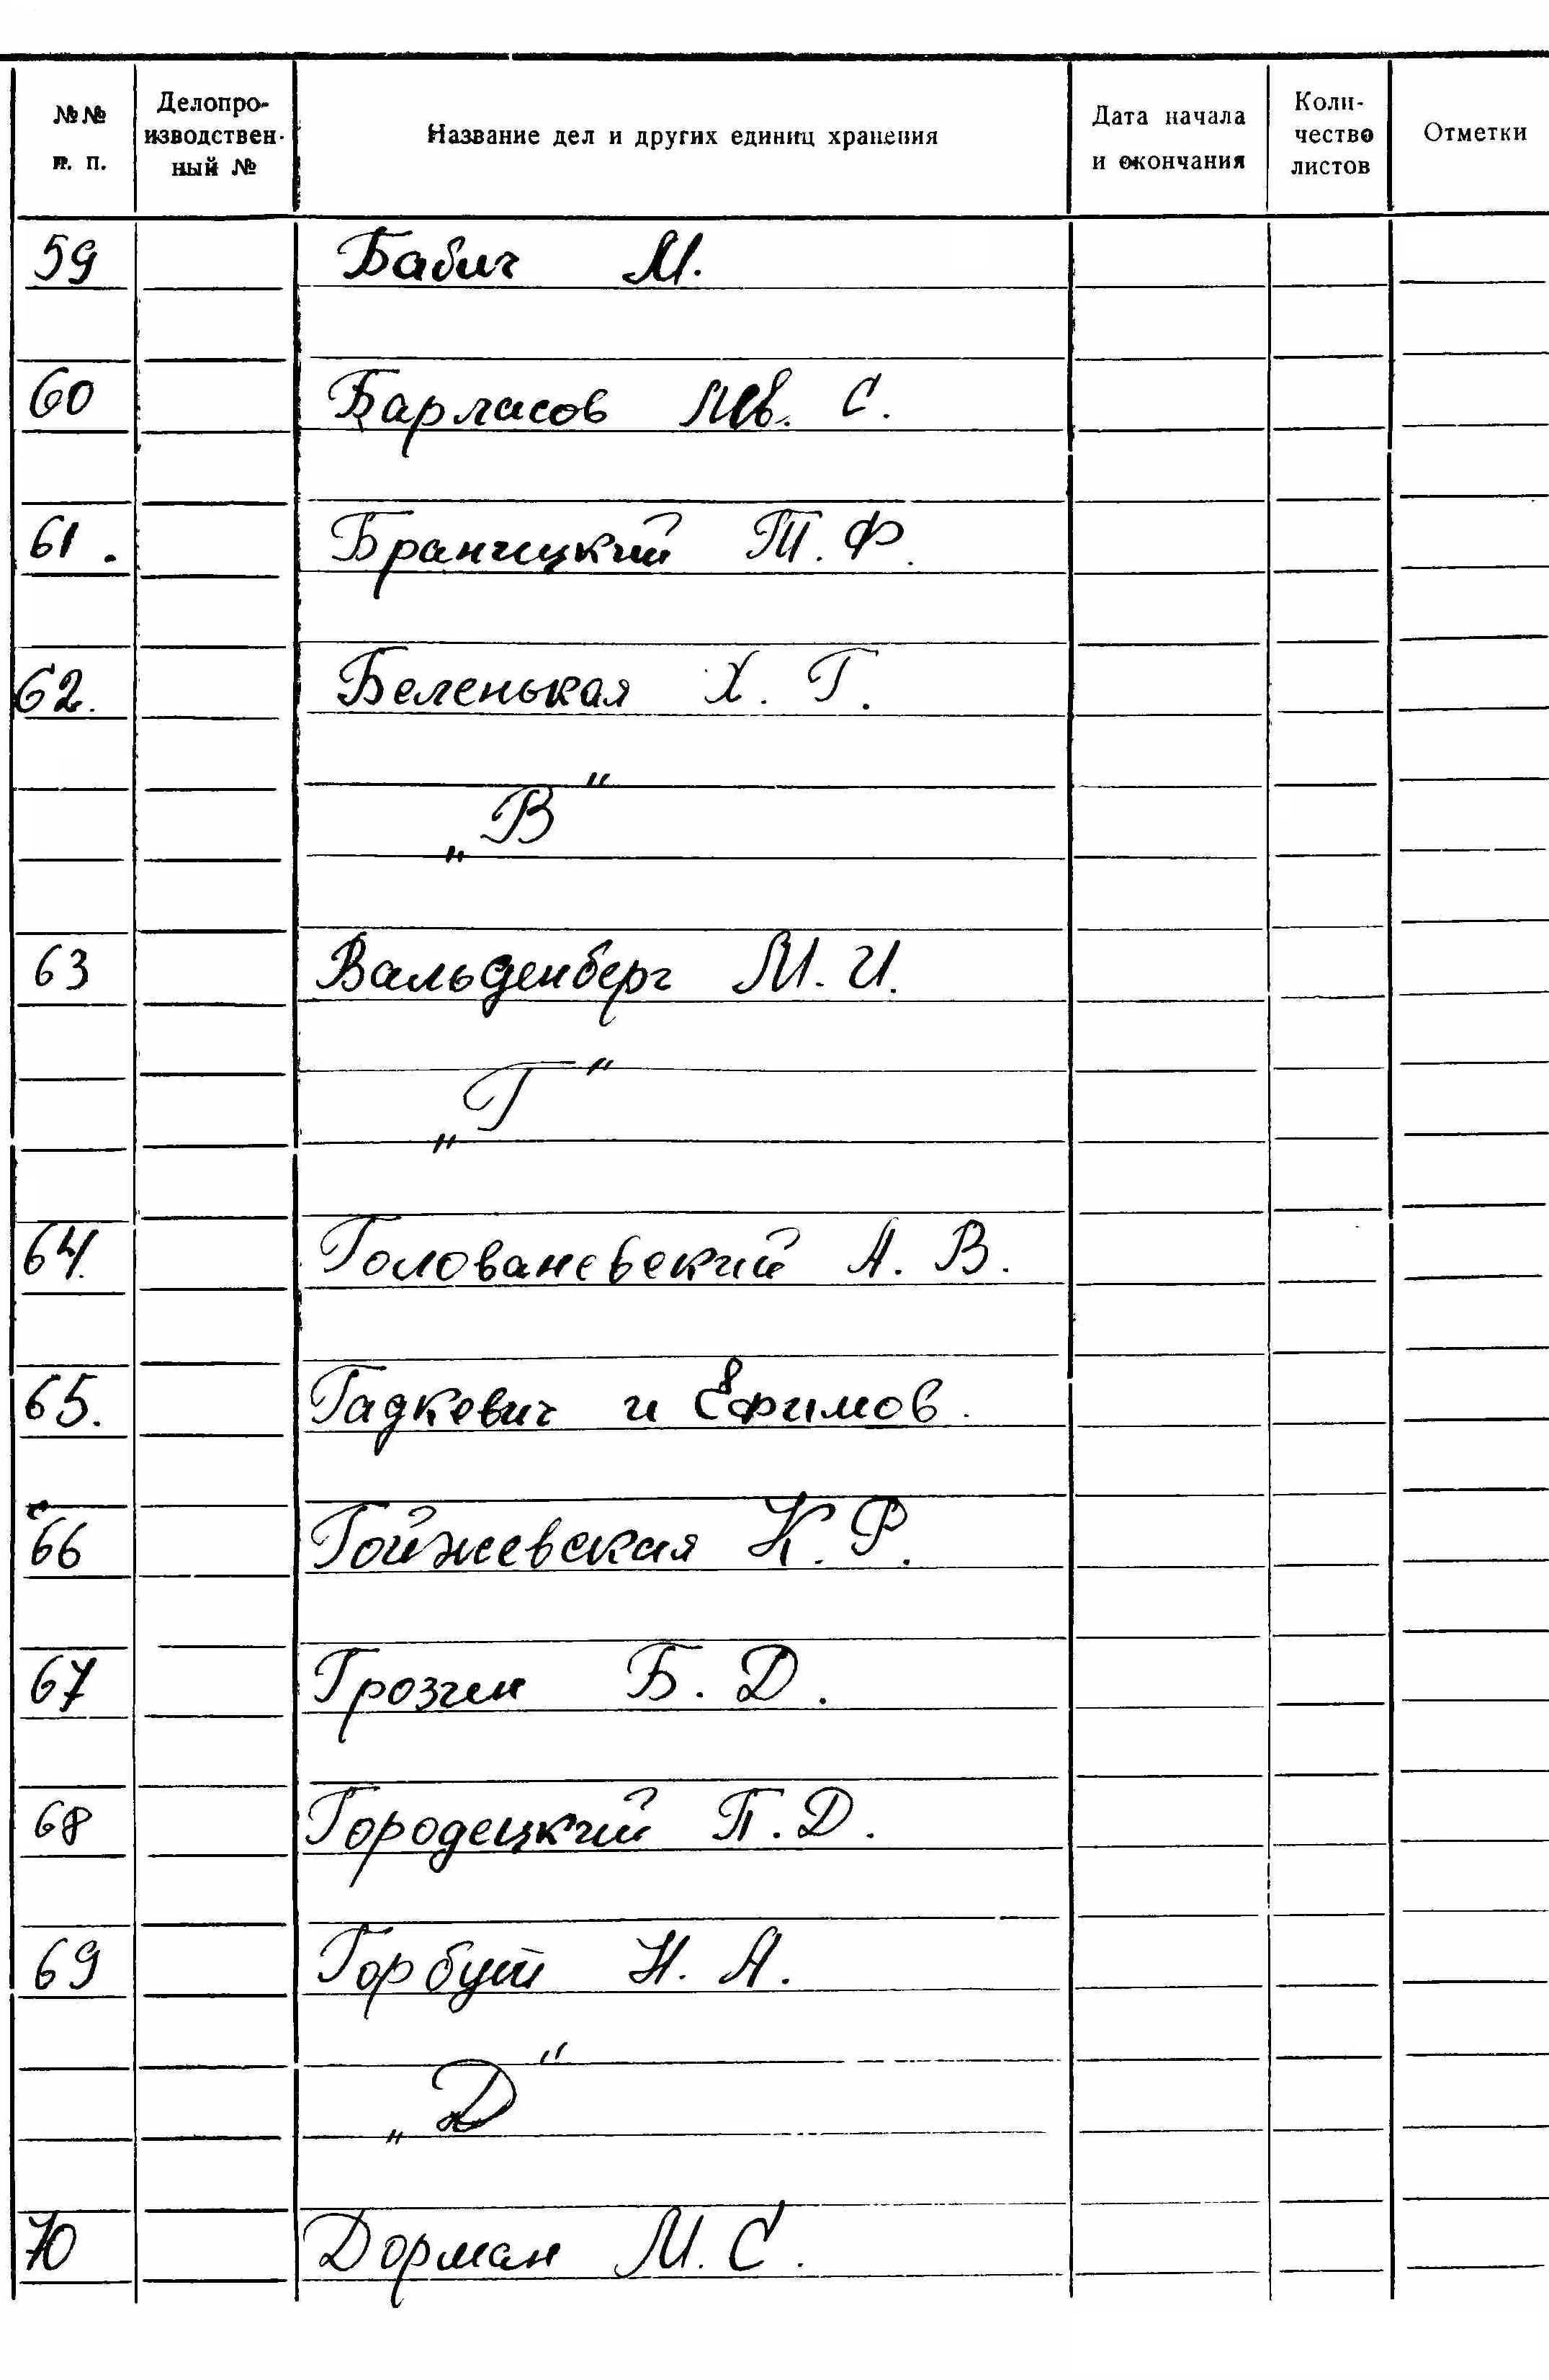 №№ п. п.
Делопроизводственный №
Название дел и других единиц хранения
Дата начала и окончания
Количество листов
Отметки
59 Бабич М.
60 Барласов С.
61. Браницкий Т. Ф.
62. Беленькая Х. Г.
„В“
63 Вальденберг М. И.
„Г“
64. Голованевский А. В.
65. Гадкевич и Ефимов.
66 Гойжевская К. Р.
67 Грозин Б. Д.
68 Городецкий П. Д.
69 Горбут Н. А.
„Д“
70 Дорман М. С.